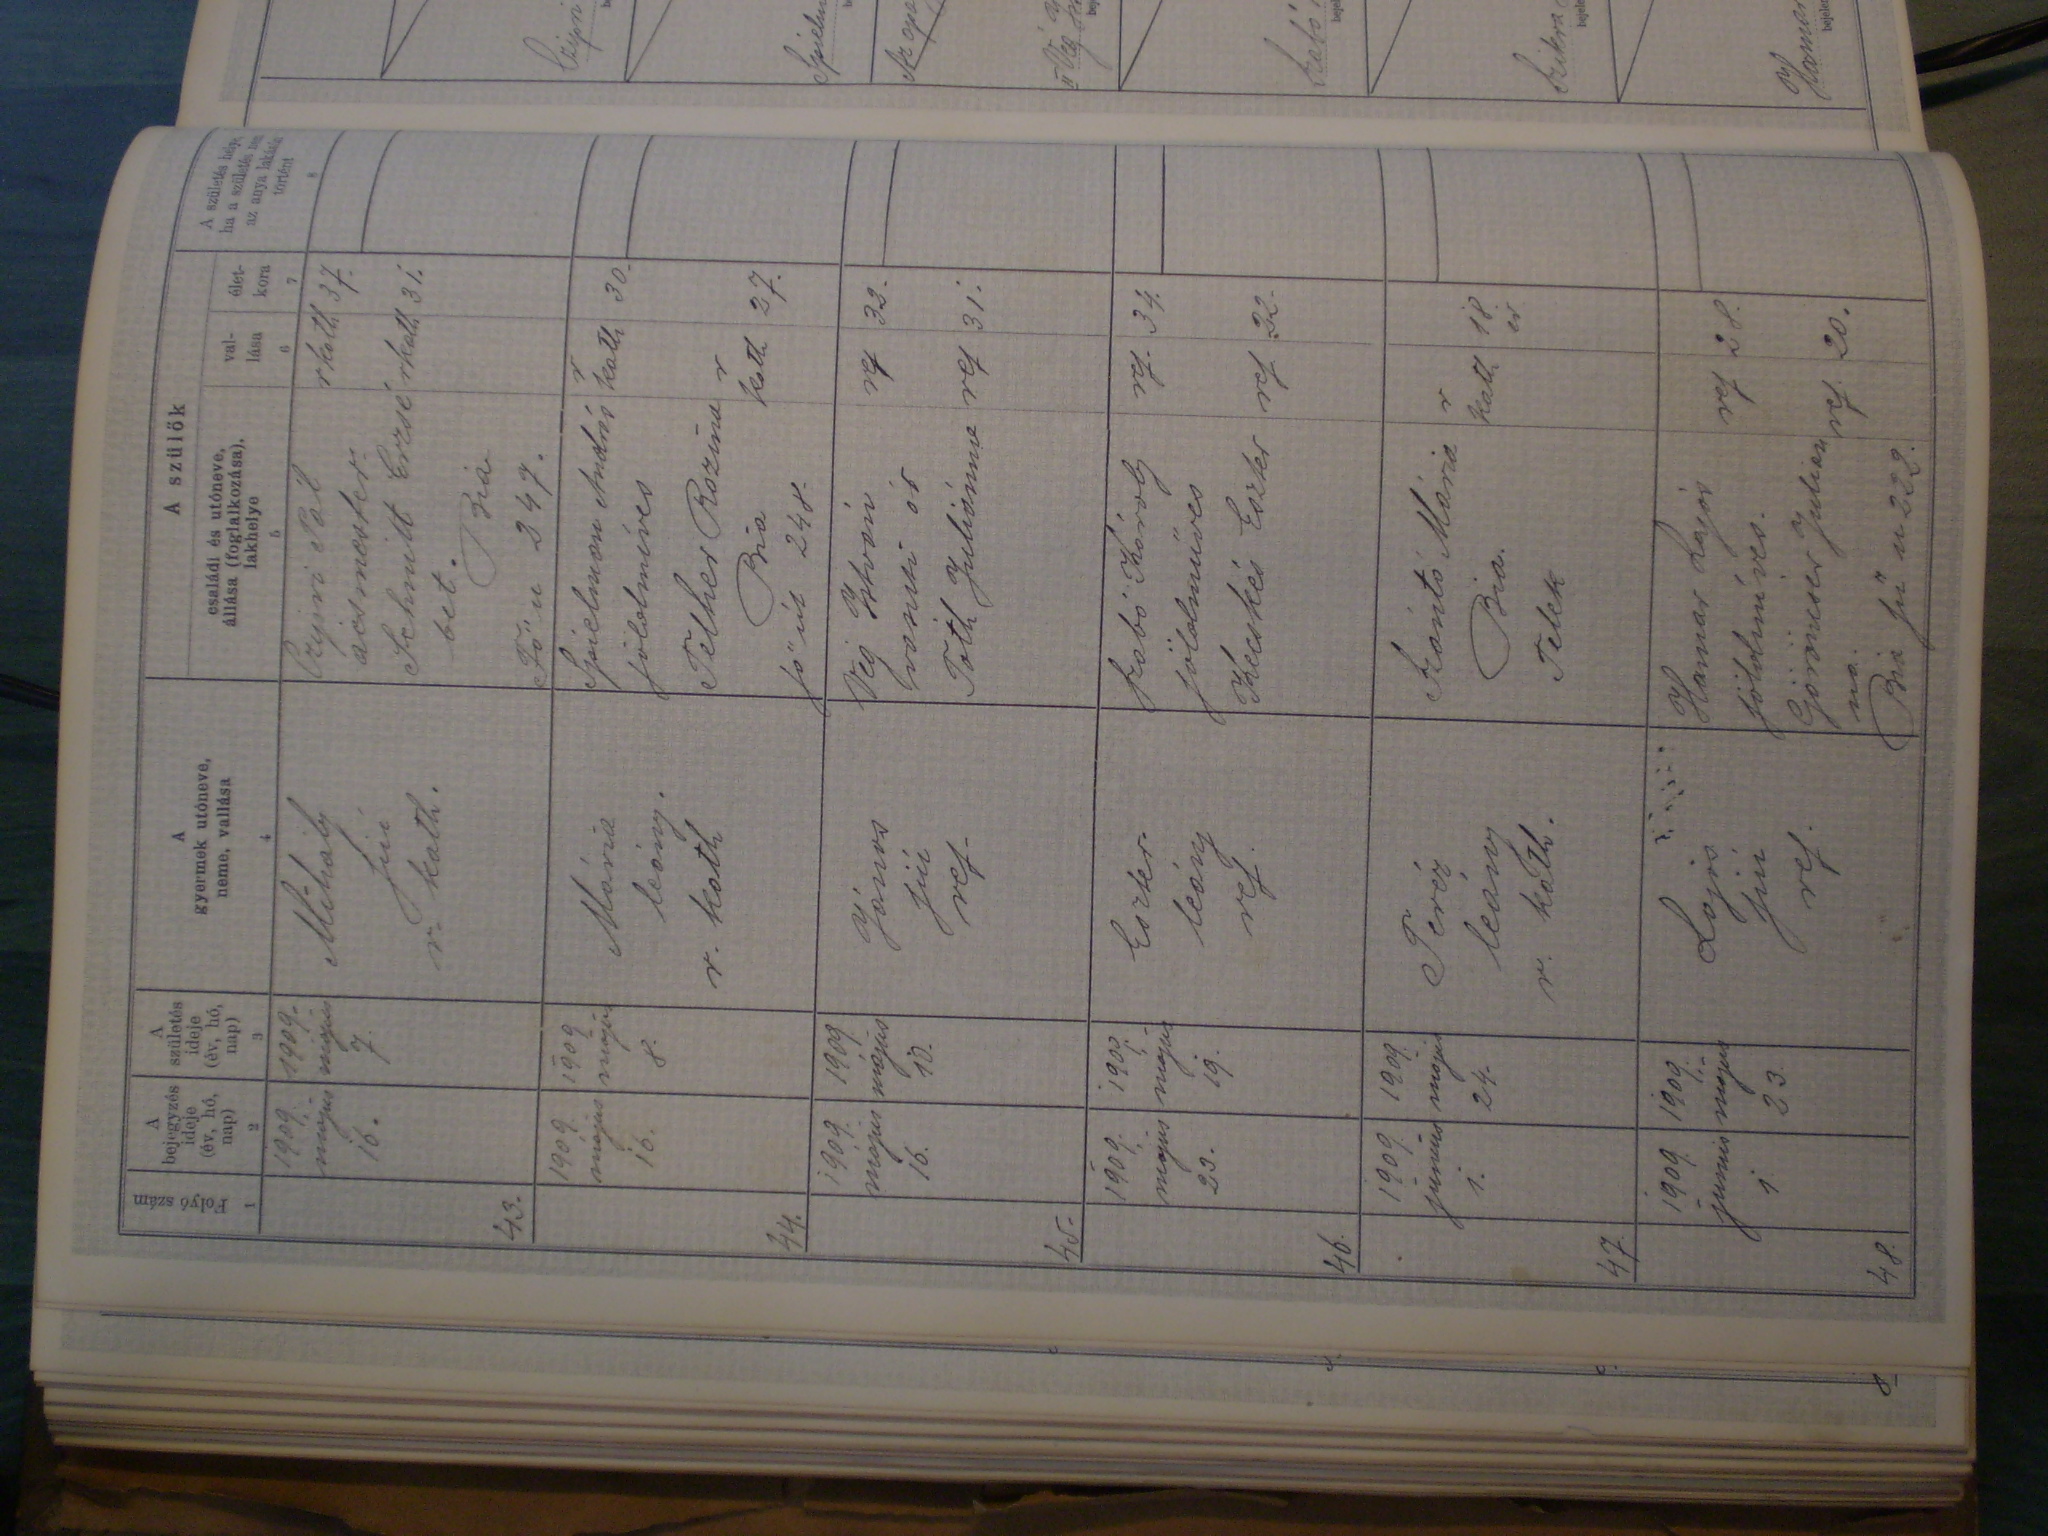 A szülők
Folyó szám
A
bejegyzés
ideje
(év, hó,
nap)
A
születés
ideje
(év, hó,
nap)
A
gyermek utóneve,
neme, vallása
családi és utóneve,
állása (foglalkozása),
lakhelye
val-
lása
élet-
kora
A születés helye,
ha a születés
az anya lakásán
történt
1
2
3
4
5
6
7
8
43.
1909.
május
16.
1909.
május
7.
Mihály
fiú
r. kath.
Czipri Pál
ácsmester
Schmitt Erzsé
bet.
Bia
Fő u 247.
r kath 37.
rkath 31.
44.
1909
május
16.
1909
május
8.
Mária
leány.
r. kath
Spielmon András
földmíves
Felher Rozina
Bia
fő út 248.
r
kath 30.
r
kath 27.
45.
1909.
május
16.
1909
május
10.
János
fiú
ref.
Vég István
Tóth Juliánna
ref 32.
ref 31.
46.
1909.
május
23.
1909.
május
19.
Eszter
leány
ref.
Szabó Károly
földmüves
Kecskés Eszter
ref. 34.
ref 32.
47.
1909.
június
1.
1909.
május
24.
Teréz
leány
r. kath.
Szántó Mária
Bia.
Telek
r
kath 18
év
48.
1909.
junius
1
1909.
május
23.
Lajos
fiú
ref.
Hamar Lajos
földmíves.
Julian
na.
Bia fü u 222.
ref 28.
ref. 20.
Czipri
Spielm
Az apa
Szabó
Szikra
Hamar
bejele